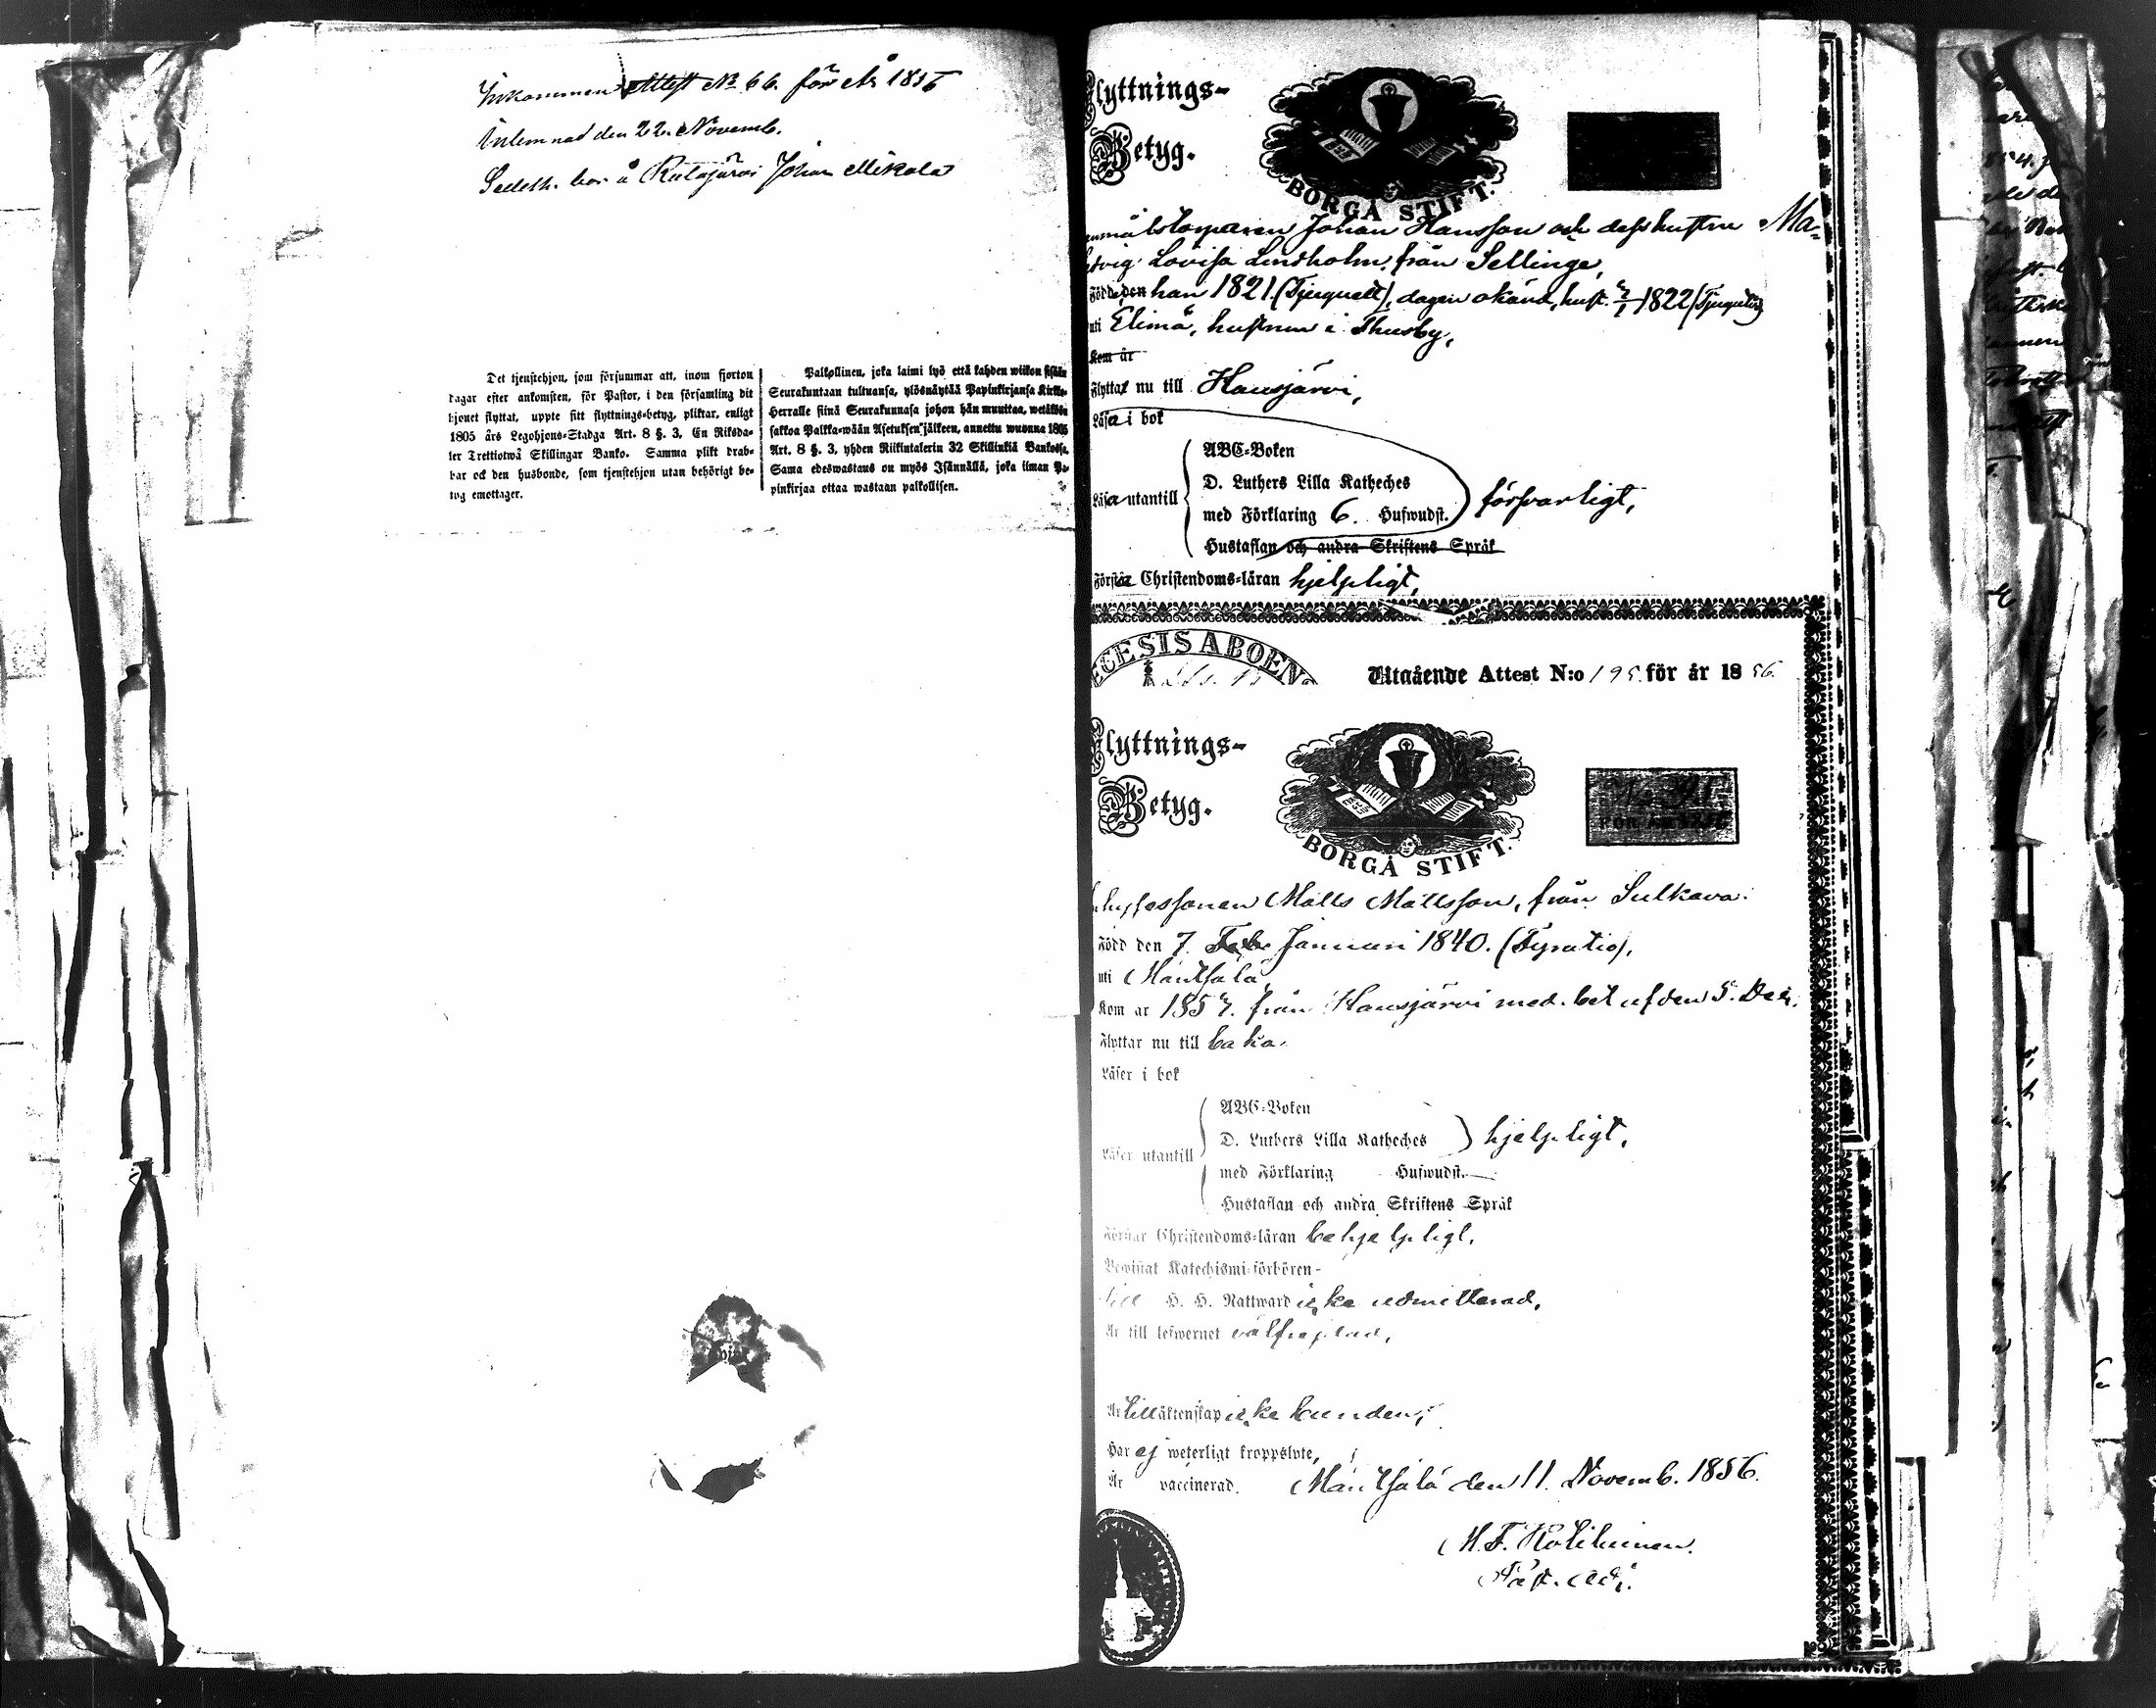 Inkommen Attest No 66. för År 1856
Inlemnad den 22. Novemb.
å Rutajärvi Johan Mikola
Det tjenstehjon, som försummar att, inom fjorton
dagar efter ankomsten, för Pastor, i den församling dit
hjonet flyttat, uppte sitt flyttnings-betyg, pliktar, enligt
1805 års Legohjons-Stadga Art. 8 §. 3, En Riksda-
ler Trettiotwå Skillingar Banko. Samma plikt drab-
bar ock den husbonde, som tjenstehjon utan behörigt be-
tyg emottager.
Palkollinen, joka laimi lyö että kahden wiikon sisään
Seurakuntaan tultuansa, ylösnäytää Papinkirjansa Kirkko-
Herralle siinä Seurakunnasa johon hän muuttaa, wetäköön
sakkoa Palkka-wään Asetuksen jälkeen, annettu wuonna 1805
Art. 8 §. 3, yhden Riikintalerin 32 Skillinkiä Bankossa.
Sama edeswastaus on myös Isännällä, joka ilman Pa-
pinkirjaa ottaa wastaan palkollisen.
Flyttnings-
Betyg.
BORGÅ STIFT.
Johan Hansson och dess hustru Ma-
Lovisa Lindholm, från Sellinge,
Född den han 1821. dagen okänd, hust. 1822
uti Elimä, hustrun i Thusby,
Kom år
Flyttar nu till Hausjärvi,
Läser i bok
Läser utantill
ABC-Boken
D. Luthers Lilla Katheches
med Förklaring 6. Hufwudst.
försvarligt,
Hustaflan och andra Skriftens Språk
Förstår Christendoms-läran hjelpligt,
ECESIS ABOEN
Utgående Attest N:o 195. för år 1856.
Flyttnings-
Betyg.
BORGÅ STIFT.
FÖR ÅR
Matts Mattsson, från Sulkava.
Född den 7. Feb. Januari 1840.
uti Mäntsälä
Kom år från Hausjärvi med bet af den 5. Dec.
Flyttar nu till baka.
Läser i bok
Läser utantill
ABC-Boken
D. Luthers Lilla Katheches
hjelpligt,
med Förklaring Hufwudst.
Hustaflan och andra Skriftens Språk
Förstår Christendoms-läran behjelpligt,
Bewistat Katechismi-förhören
till H. H. Nattward icke admitterad,
Är till lefwernet välfrejdad,
Är till äktenskap icke bunden,
Har ej weterligt kroppslyte,
Är vaccinerad. Mäntsälä den 11. Novemb. 1856.
Past. Adj.